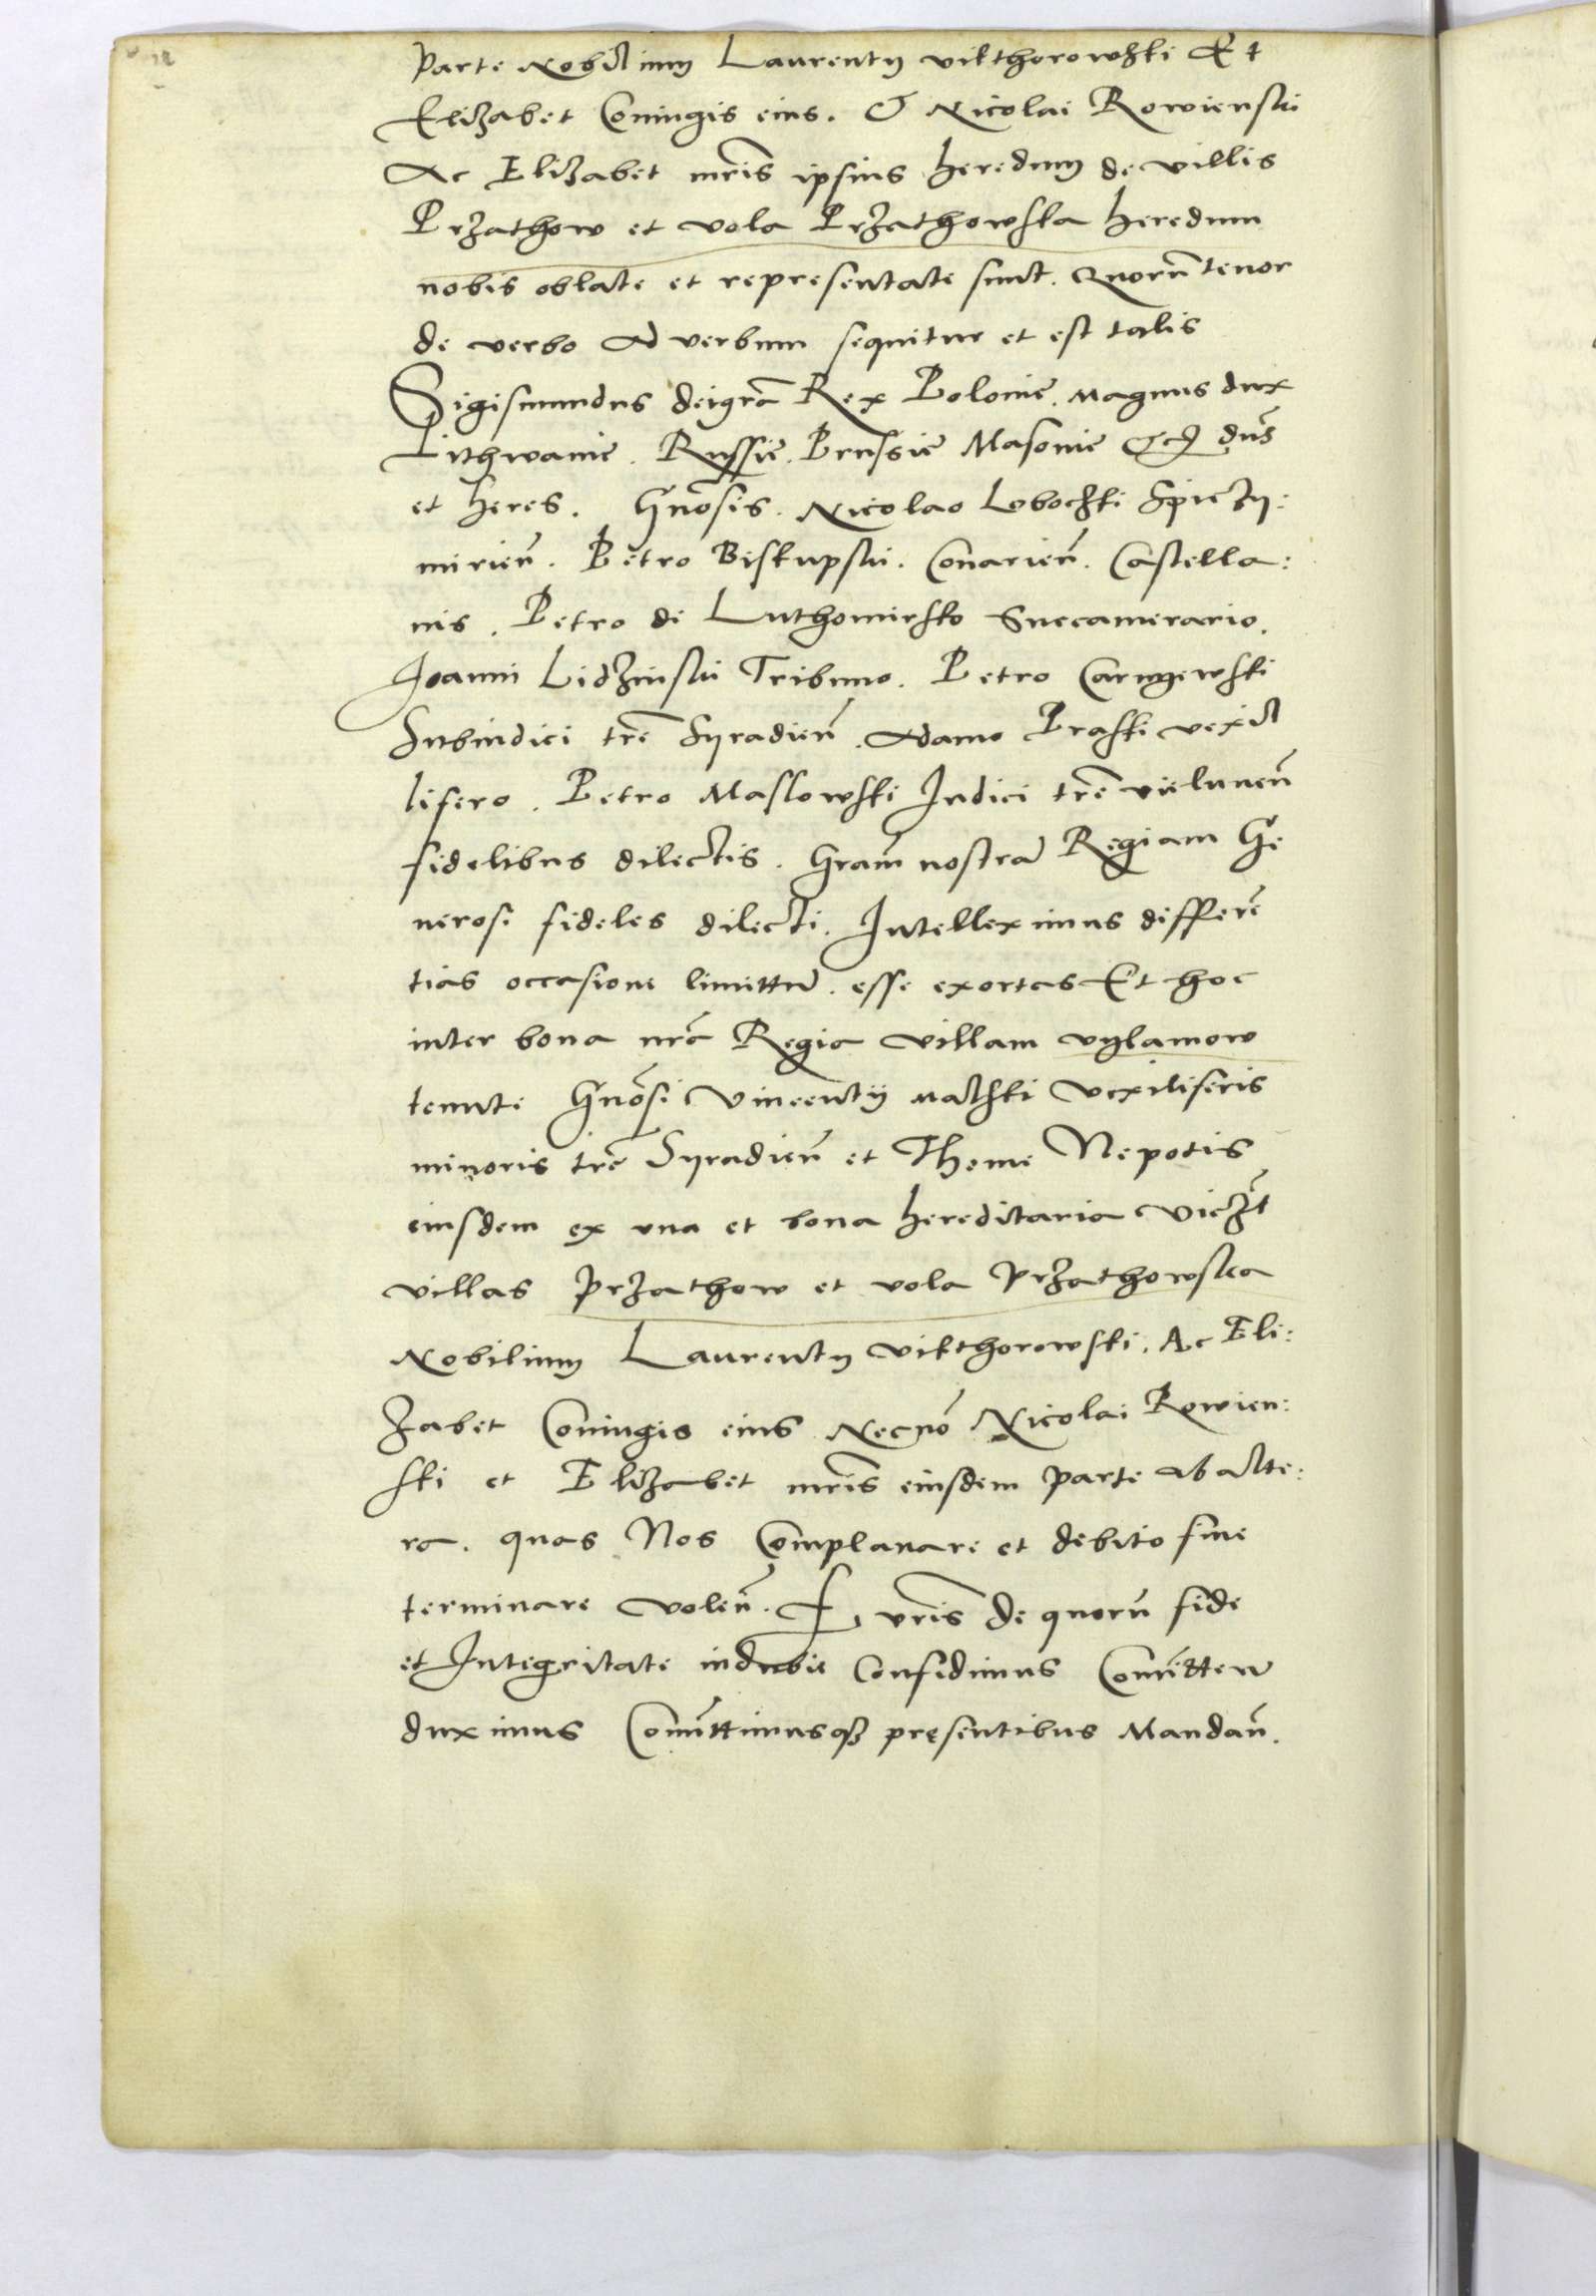 Parte Nobilium Laurentij vikthorowski Et
Elizabet Coniugis eius. & Nicolai Rowienski
Ac Elizabet mr̃is ipsius heredum de villis
Przathow et vola Przathowska heredum
nobis oblate et representate sunt. Quorũ tenor
de verbo Ad verbum sequitur et est talis
Sigismundus dei grã Rex Polonie. Magnus dux
Lithwanie. Russie. Prussie Masouie &c dñs
et heres. Gñosis. Nicolao Lobochki Spiczy:
mirieñ. Petro Biskupski. Conarieñ. Castella:
nis. Petro de Luthomirsko Succamerario.
Joanni Lidzinski Tribuno. Petro Carnyewski
Subiudici tr̃e Syradieñ. Adamo Praski vexil
lifero. Petro Maslowski Judici tr̃e vieluneñ
fidelibus dilectis. Gram̃ nostrã Regiam Ge
nerosi fideles dilecti. Intelleximus differẽ
tias occasione limittũ. esse exortas Et hoc
inter bona nr̃a Regia villam vylamow
tenute Gñosi Vincentij Naczki Vexiliferis
minoris tr̃e Syradieñ et Thome Nepotis
eiusdem ex una et bona hereditaria viczt̃
villas Przathow et vola Przathowska
Nobilium Laurentij vikthorowski. Ac Eli:
zabet Coniugis eius Necnõ Nicolai Rowien:
ski et Elizabet mr̃is eiusdem parte ab alte:
ra. quas Nos Complanare et debito fine
terminare voleñ. F. vr̃is de quorũ fide
et Integritate indubie Confidimus Com̃itten
duximus Com̃ittimusqʒ pręsentibus Mandañ.